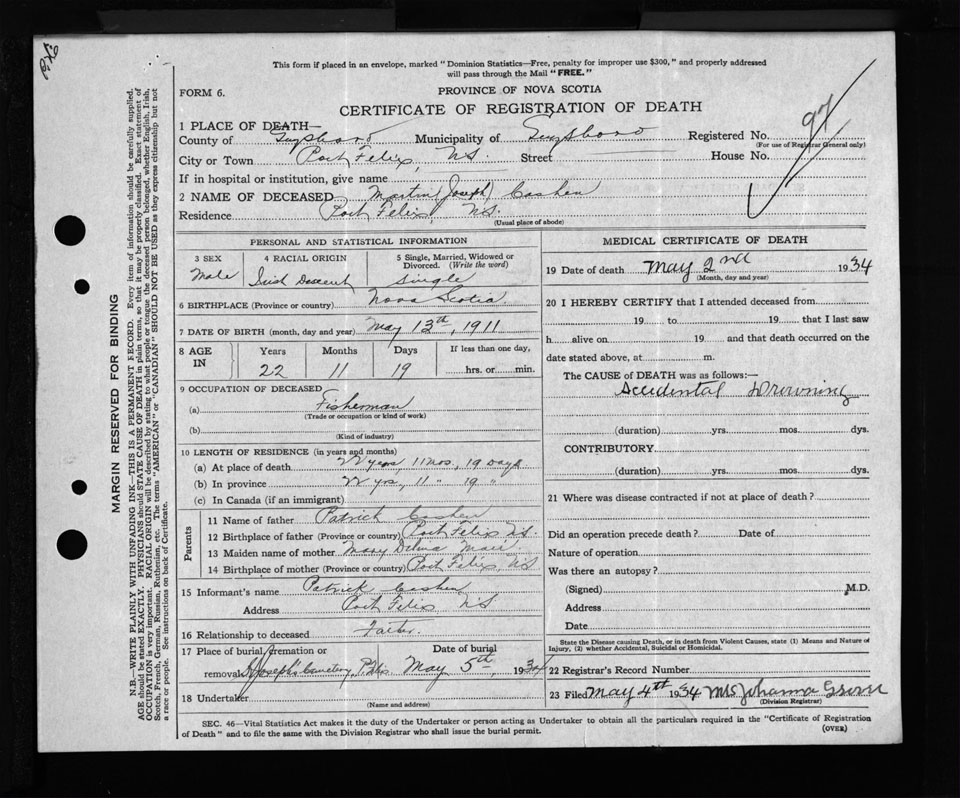 This form if placed in an envelope, marked "Dominion Statistics—Free, penalty for improper use $300," and properly addressed
will pass through the Mail "FREE."
FORM 6.
PROVINCE OF NOVA SCOTIA
CERTIFICATE OF REGISTRATION OF DEATH
1 PLACE OF DEATH—
County of Guysboro Municipality of Guysboro Registered No. 97
(For use of Registrar General only)
City or Town Port Felix, N.S. Street House No.
If in hospital or institution, give name
2 NAME OF DECEASED Martin (Joseph) Cashen
Residence Port Felix N.S.
(Usual place of abode)
PERSONAL AND STATISTICAL INFORMATION
3 SEX 4 RACIAL ORIGIN 5 Single, Married, Widowed or Divorced. (Write the word)
Male Irish Descent Single
6 BIRTHPLACE (Province or country) Nova Scotia
7 DATE OF BIRTH (month, day and year) May 13th, 1911
8 AGE IN Years Months Days If less than one day,
22 11 19 hrs. or min.
9 OCCUPATION OF DECEASED
(a) Fisherman
(Trade or occupation or kind of work)
(b)
(Kind of industry)
10 LENGTH OF RESIDENCE (in years and months)
(a) At place of death 22 years 11 mos, 19 Days
(b) In province 22 yrs, 11 " 19 "
(c) In Canada (if an immigrant)
Parents
11 Name of father Patrick Cashen
12 Birthplace of father (Province or country) Port Felix N.S.
13 Maiden name of mother Mary
14 Birthplace of mother (Province or country) Port Felix N.S
15 Informant's name Patrick Cashen
Address Port Felix N.S
16 Relationship to deceased Father.
17 Place of burial, cremation or removal Date of burial
St Joseph's Cemetery, May 5th, 1934
18 Undertaker
(Name and address)
MEDICAL CERTIFICATE OF DEATH
19 Date of death May 2nd 1934
(Month, day and year)
20 I HEREBY CERTIFY that I attended deceased from
19 to 19 that I last saw
h alive on 19 and that death occurred on the
date stated above, at m.
The CAUSE of DEATH was as follows:—
Accidental Drowning
(duration) yrs. mos. dys.
CONTRIBUTORY
(duration) yrs. mos. dys.
21 Where was disease contracted if not at place of death?
Did an operation precede death? Date of
Nature of operation
Was there an autopsy?
(Signed) M.D.
Address
Date
State the Disease causing Death, or in death from Violent Causes, state (1) Means and Nature of
Injury, (2) whether Accidental, Suicidal or Homicidal.
22 Registrar's Record Number
23 Filed May 4th 1934 Mrs Johanna
(Division Registrar)
SEC. 46—Vital Statistics Act makes it the duty of the Undertaker or person acting as Undertaker to obtain all the particulars required in the "Certificate of Registration
of Death" and to file the same with the Division Registrar who shall issue the burial permit.
(OVER)
MARGIN RESERVED FOR BINDING
N.B.—WRITE PLAINLY WITH UNFADING INK—THIS IS A PERMANENT RECORD. Every item of information should be carefully supplied.
AGE should be stated EXACTLY. PHYSICIANS should STATE CAUSE OF DEATH in plain terms, so that it may be properly classified. Exact statement of
OCCUPATION is very important. RACIAL ORIGIN will be described by stating to what people or tongue the deceased person belonged, whether English, Irish,
Scotch, French, German, Russian, Ruthenian, etc. The terms "AMERICAN" or "CANADIAN" SHOULD NOT BE USED as they express citizenship but not
a race or people. See instructions on back of Certificate.